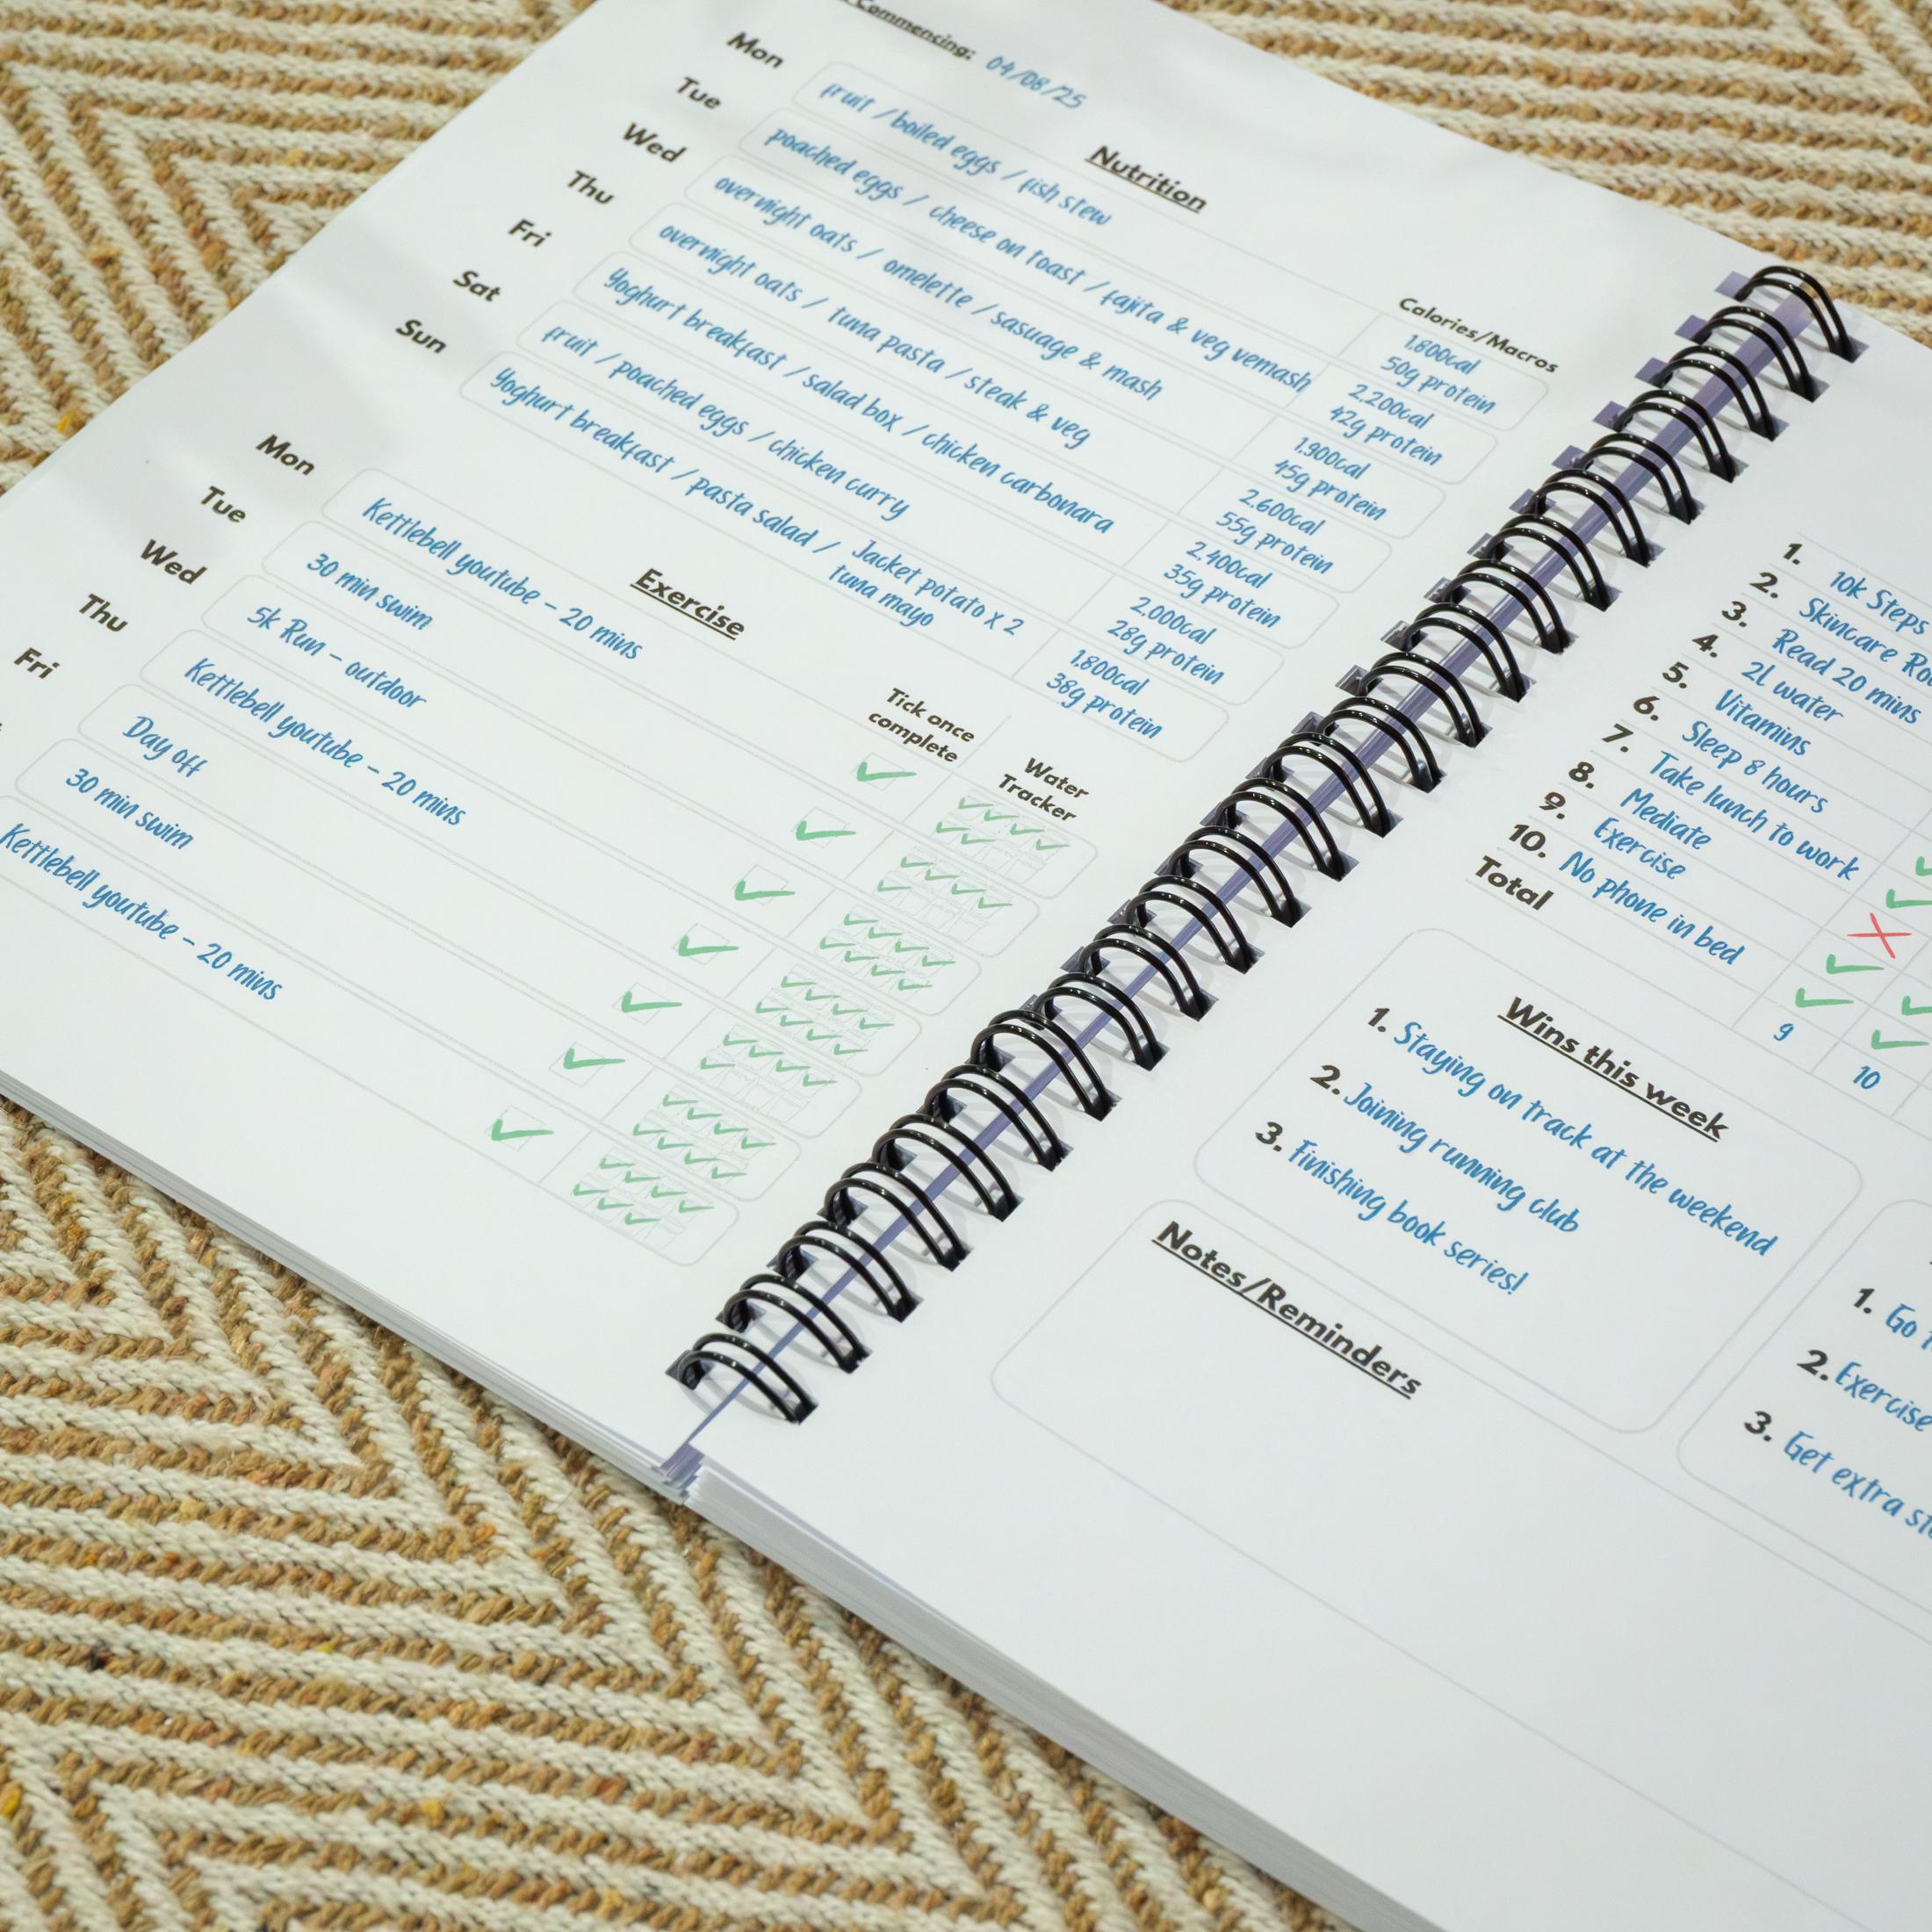 Commencing: 04/08/25
Nutrition
Calories/Macros
Mon fruit / boiled eggs / fish stew 1,800cal
50g protein
Tue poached eggs / cheese on toast / fajita & veg vemash 2,200cal
42g protein
Wed overnight oats / omelette / sasuage & mash 1,900cal
45g protein
Thu overnight oats / tuna pasta / steak & veg 2,600cal
55g protein
Fri Yoghurt breakfast / salad box / chicken carbonara 2,400cal
35g protein
Sat fruit / poached eggs / chicken curry 2,000cal
28g protein
Sun Yoghurt breakfast / pasta salad / Jacket potato x 2
tuna mayo
1,800cal
38g protein
Exercise
Tick once
complete
Water
Tracker
Mon Kettlebell youtube - 20 mins
Tue 30 min swim
Wed 5k Run - outdoor
Thu Kettlebell youtube - 20 mins
Fri Day off
30 min swim
Kettlebell youtube - 20 mins
1. 10k Steps
2. Skincare
3. Read 20 mins
4. 2l water
5. Vitamins
6. Sleep 8 hours
7. Take lunch to work
8. Mediate
9. Exercise
10. No phone in bed
Total 9 10
Wins this week
1. Staying on track at the weekend
2. Joining running club
3. Finishing book series!
Notes/Reminders
1. Go
2. Exercise
3. Get extra